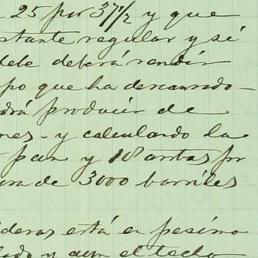 25 por 37 1/2 y que
stante regular y si
debe deberá rendir
po que ha desarro-
drá producir de
nes - y calculando la
pan y 18 arrobas pr
ra de 3000 barriles
deras está en pesimo
lado y aun el techo